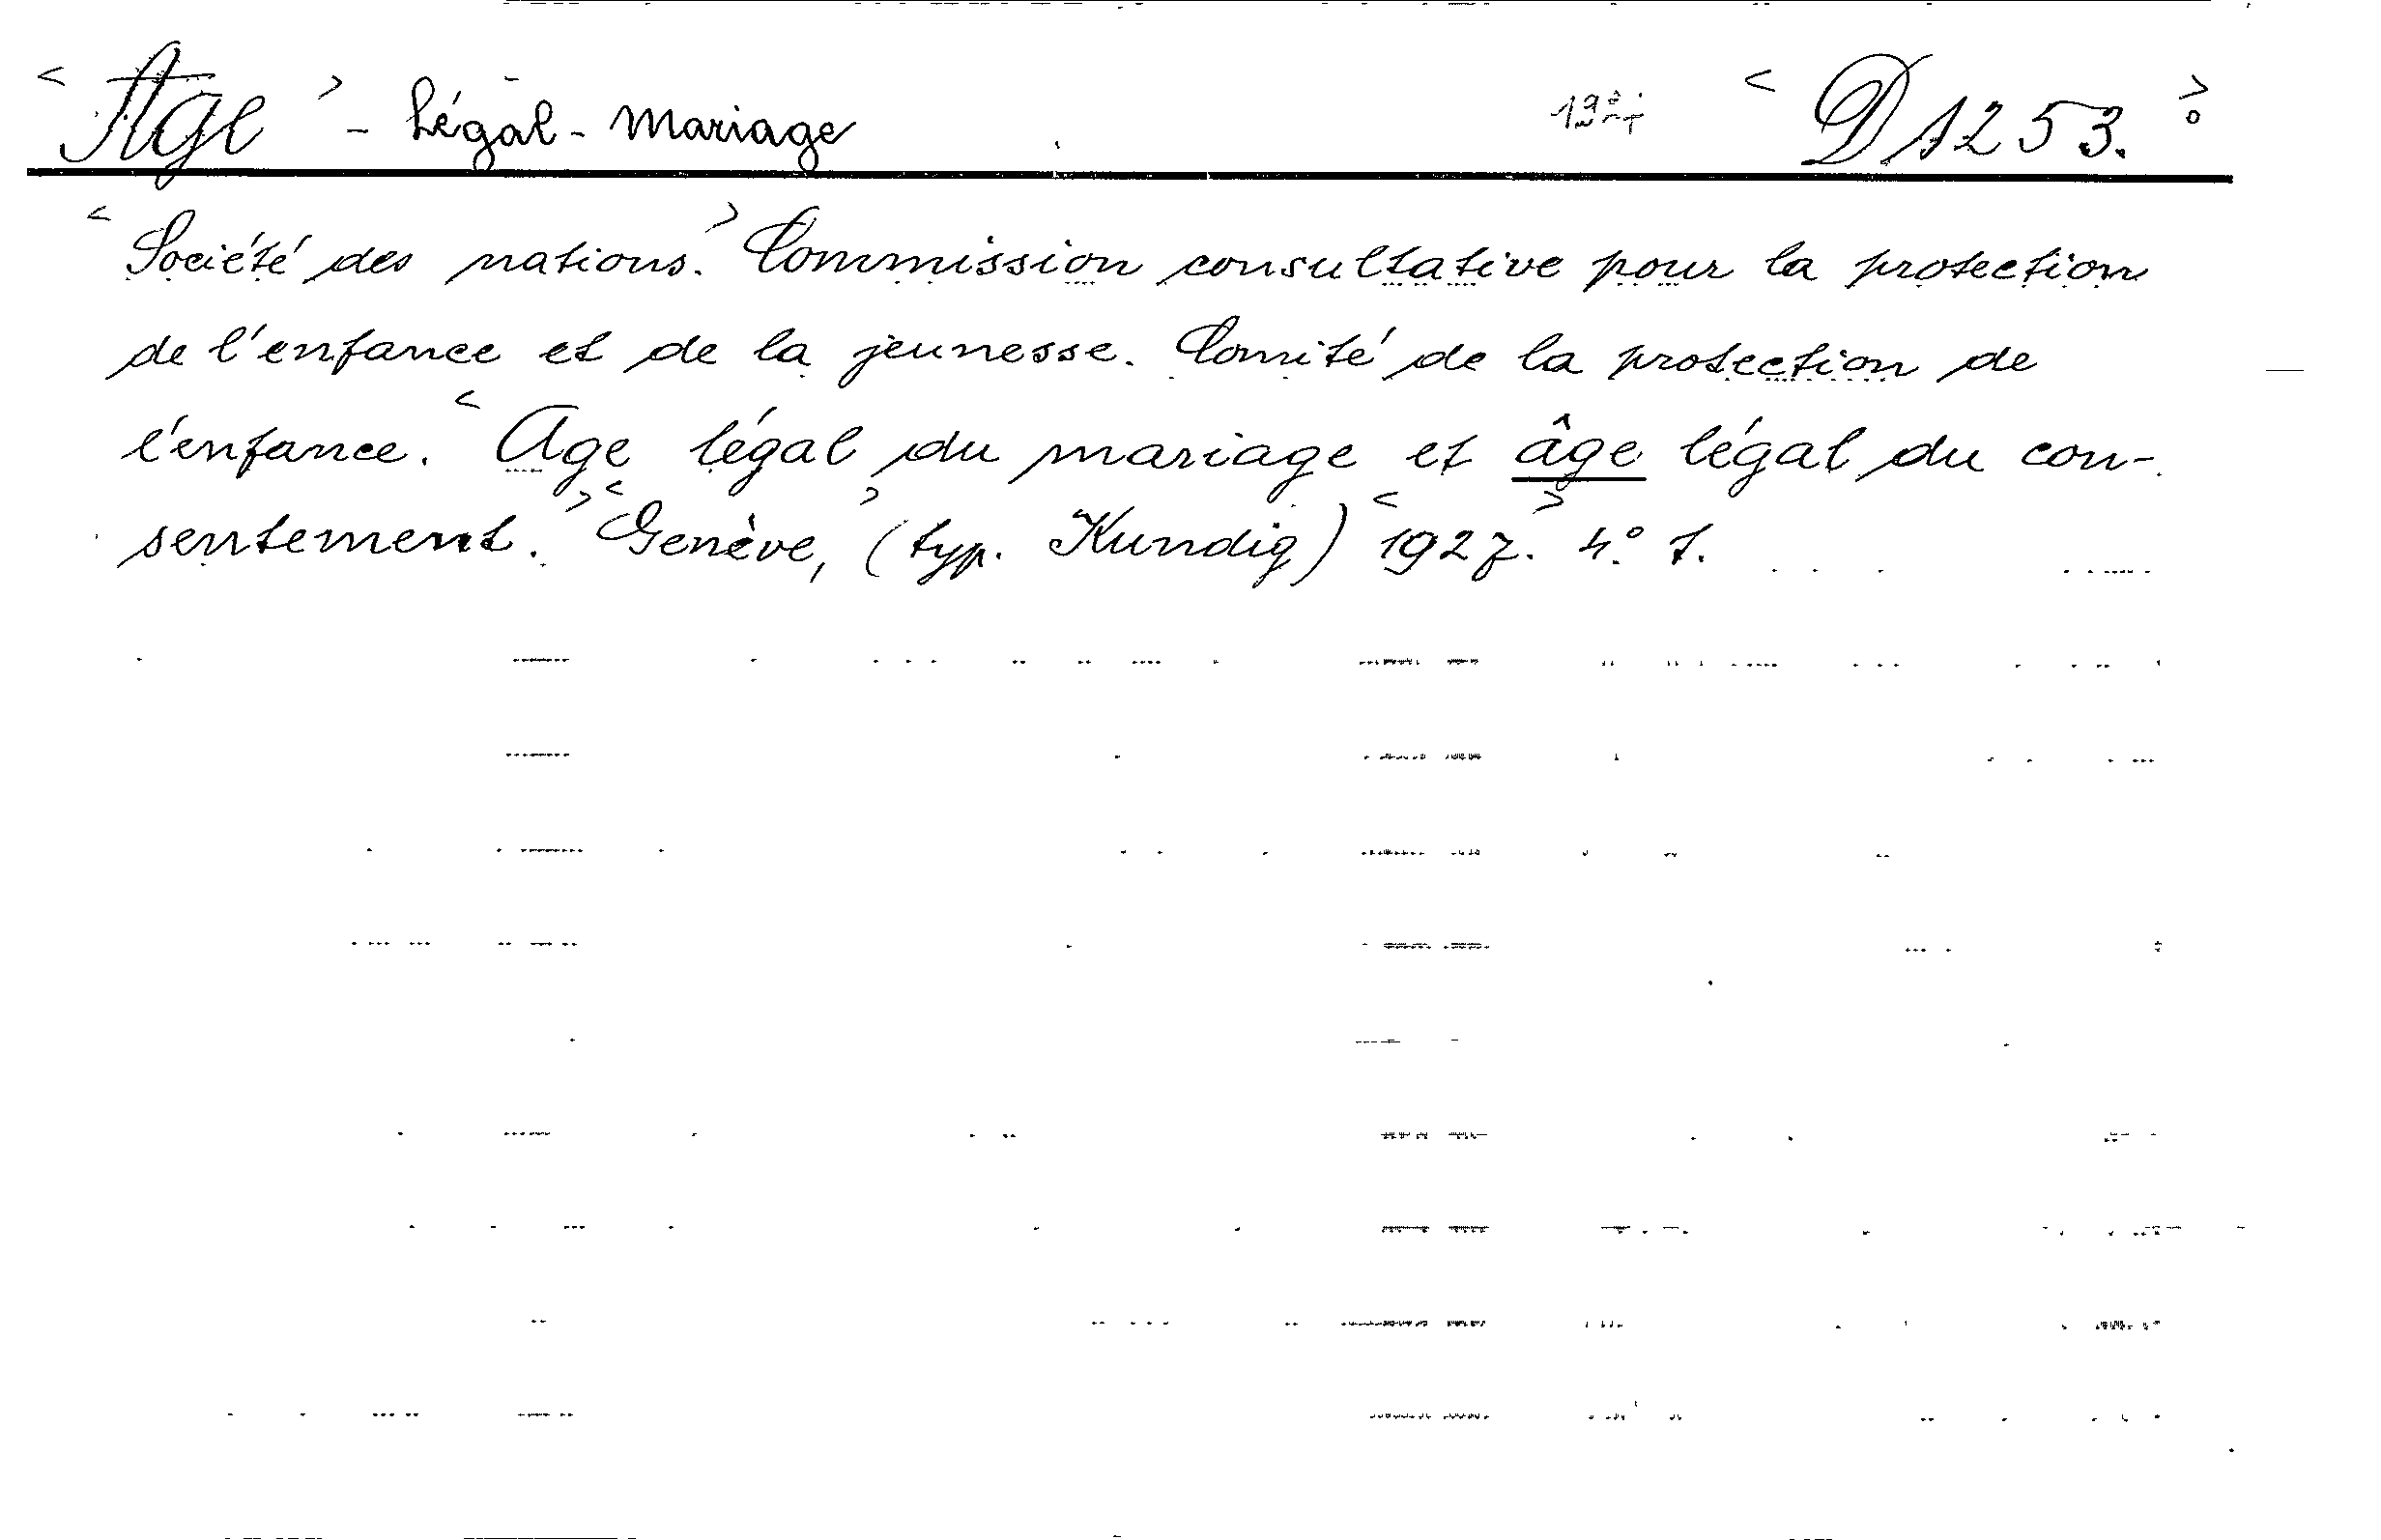 <Age> - légal - mariage <DA253.>
<Société des nations.> Commission consultative pour la protection
de l'enfance et de la jeunesse. Comité de la protection de
l'enfance. <Age légal du mariage et âge légal du con-
sentement.> <Genève,> (typ. Kundig) <1927.> 4.° 1.